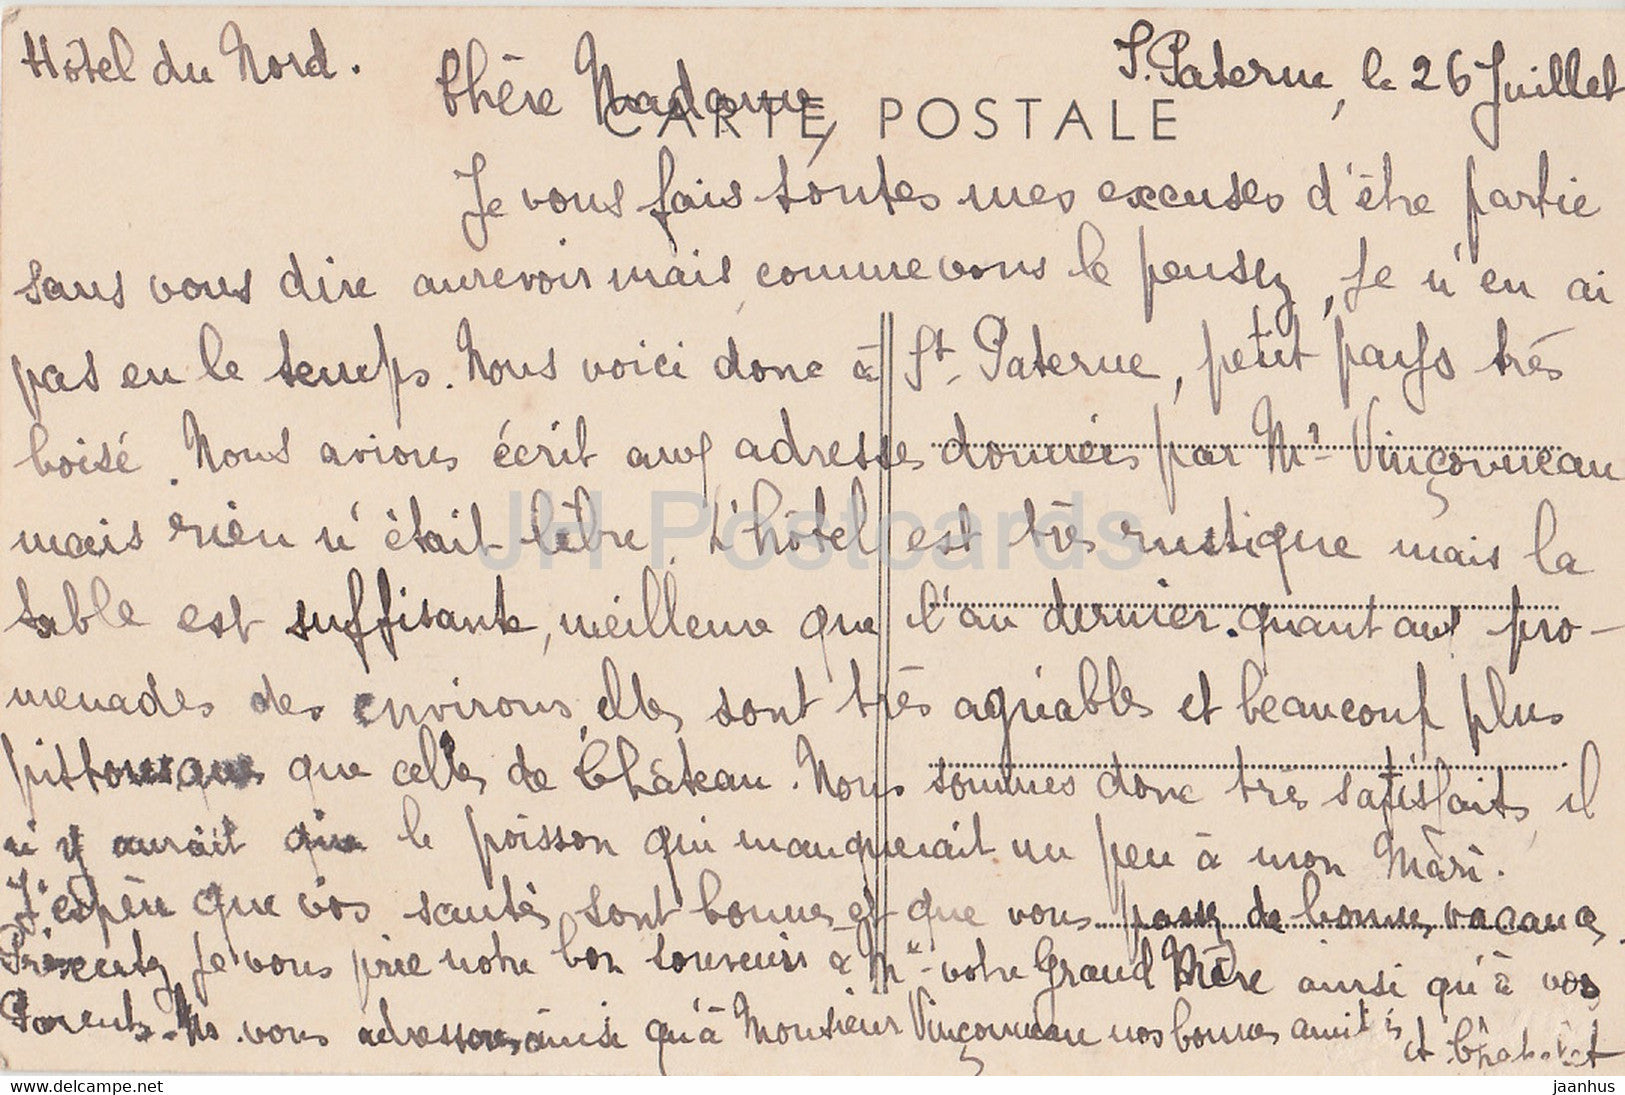 Hôtel du Nord.
S. Paterne, le 26 Juillet
Chère Madame,
CARTE POSTALE
Je vous fais toutes mes excuses d'être partie
sans vous dire aurevoir mais comme vous le pensez, je n'en ai
pas eu le temps. Nous voici donc à St. Paterne, petit pays très
boisé. Nous avions écrit aux adresses données par Mr Vinçonneau
mais rien n'était libre. L'hôtel est très rustique mais la
table est suffisante, meilleure que l'an dernier. quant aux pro-
menades des environs, elles sont très agréables et beaucoup plus
pittoresques que celles de Château. Nous sommes donc très satisfaits, il
n'y aurait que le poisson qui manquerait un peu à mon Mari.
J'espère que vos santés sont bonnes et que vous passez de bonnes vacances.
Présentez je vous prie notre bon souvenir à Me votre Grand Mère ainsi qu'à vos
Parents. Ns vous adressons ainsi qu'à Monsieur Vinçonneau nos bonnes amitiés
et
JH Postcards
www.delcampe.net
jaanhus